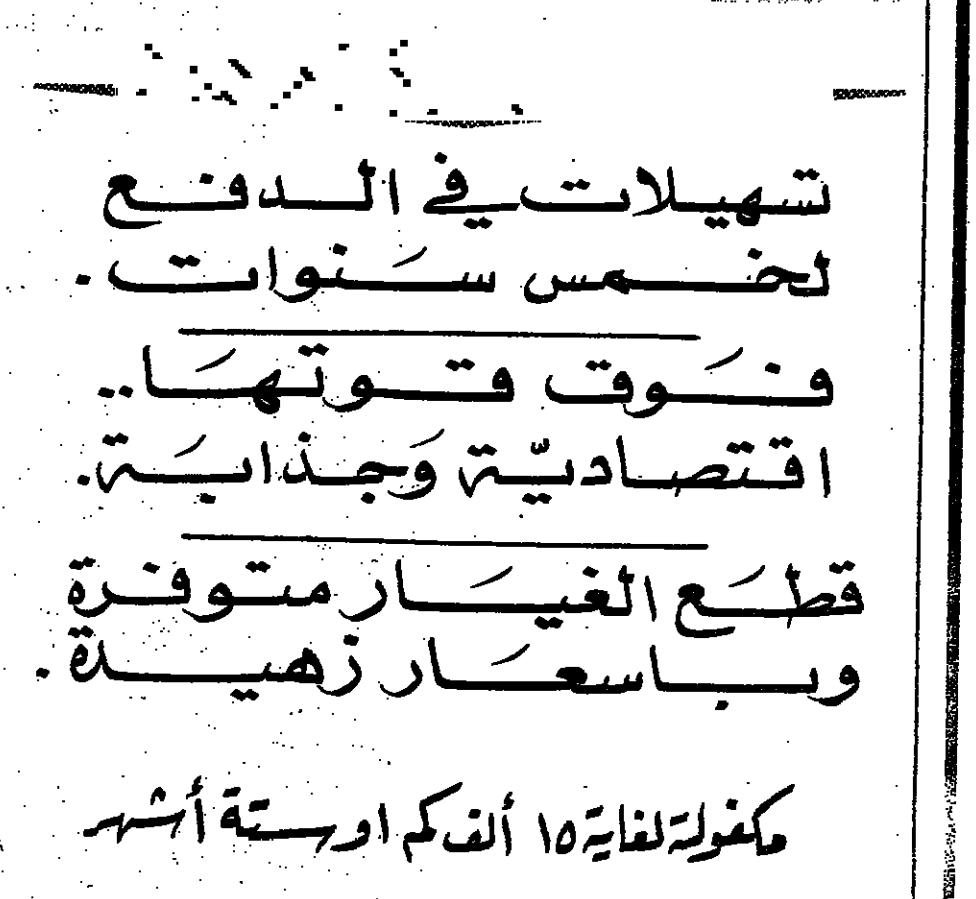 تسهيلات في الدفع
لخمس سنوات .
فوق قوتها ..
اقتصاديّة وجذابة .
قطع الغيار متوفرة
وباسعار زهيدة .
مكفولة لغاية ١٥ ألف كم او ستة أشهر